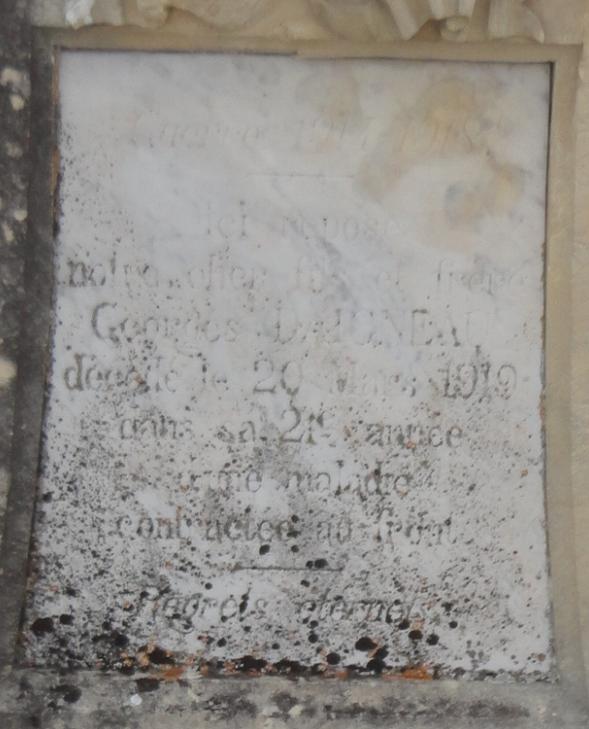 Guerre 1914-1918
Ici repose
notre cher fils et frère
Georges
décédé le 20 Mars 1919
dans sa 21e année
d'une maladie
contractée au front
Regrets éternels